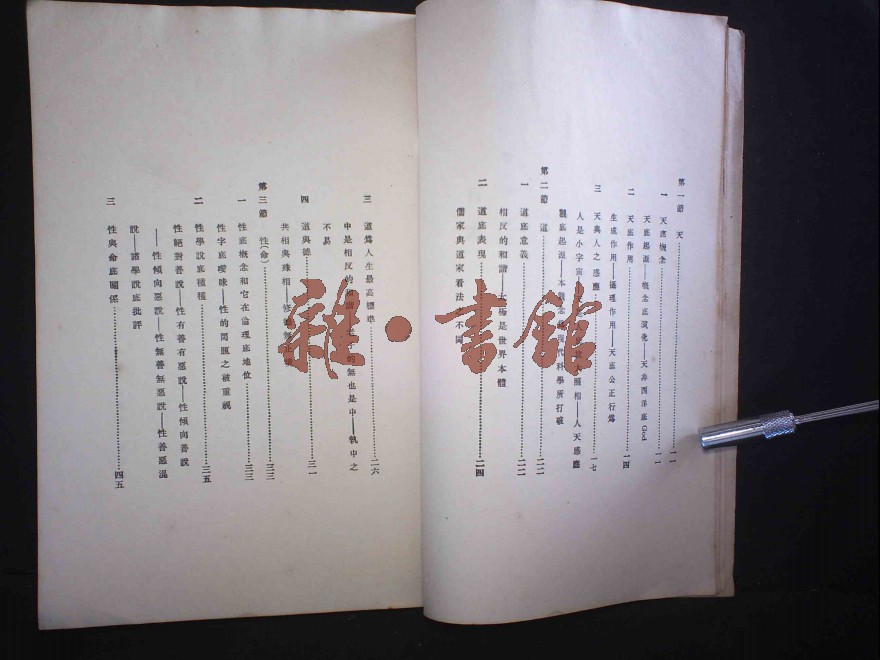 第一節 天……一一
一 天底概念……一一
天底起源——概念底演化——天非西洋底God
二 天底作用……一四
生成作用——攝理作用——天底公正行爲
三 天與人之感應……一七
人是小字宙 人天感應
觀底起源——本 代科學所打破
第二節 道……二二
一 道底意義……二二
相反的和諧—— 極是世界本體
二 道底表現……二四
儒家與道家看法之不同
三 道爲人生最高標準……二六
中是相反的 的無也是中——執中之
不易
四 道與德……三一
共相與殊相——
第三節 性(命)……三三
一 性底概念和它在倫理底地位……三三
性字底曖昧——性的問題之被重視
二 性學說底種種……三五
性絕對善說——性有善有惡說——性傾向善說
——性傾向惡說——性無善無惡說——性善惡混
說——諸學說底批評
三 性與命底關係……四五
雜·書館